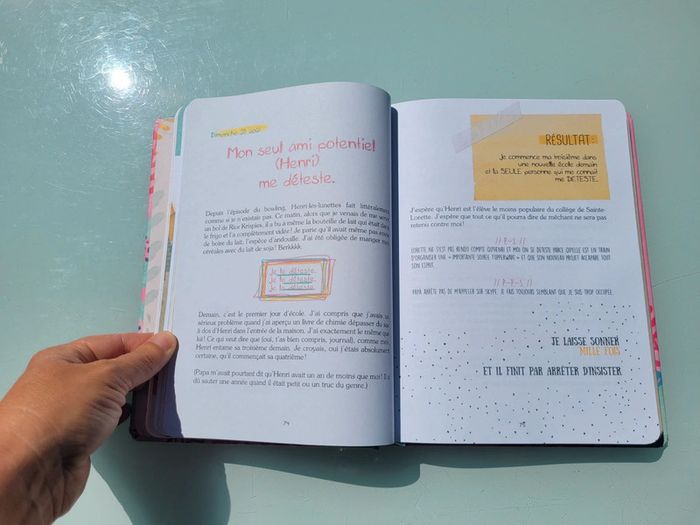 Dimanche 31 août
Mon seul ami potentiel
(Henri)
me déteste.
Depuis l'épisode du bowling, Henri-les-lunettes fait littéralement
comme si je n'existais pas. Ce matin, alors que je venais de me servir
un bol de Rice Krispies, il a bu à même la bouteille de lait qui était dans
le frigo et l'a complètement vidée! Je parie qu'il avait même pas envie
de boire du lait; l'espèce d'andouille. J'ai été obligée de manger mes
céréales avec du lait de soja! Berkkkk.
Je te déteste.
Je te déteste.
Je te déteste.
Demain, c'est le premier jour d'école. J'ai compris que j'avais un
sérieux problème quand j'ai aperçu un livre de chimie dépasser du sac
à dos d'Henri dans l'entrée de la maison. J'ai exactement le même que
lui! Ce qui veut dire que (oui, t'as bien compris, journal), comme moi,
Henri entame sa troisième demain. Je croyais, oui j'étais absolument
certaine, qu'il commençait sa quatrième!
(Papa m'avait pourtant dit qu'Henri avait un an de moins que moi! Il a
dû sauter une année quand il était petit ou un truc du genre.)
74
RÉSULTAT:
Je commence ma troisième dans
une nouvelle école demain
et la SEULE personne qui me connaît
me DÉTESTE.
J'espère qu'Henri est l'élève le moins populaire du collège de Sainte-
Lorette. J'espère que tout ce qu'il pourra dire de méchant ne sera pas
retenu contre moi!
// P.-S. //
LORETTE NE S'EST PAS RENDU COMPTE QU'HENRI ET MOI ON SE DÉTESTE PARCE QU'ELLE EST EN TRAIN
D'ORGANISER UNE « IMPORTANTE SOIRÉE TUPPERWARE » ET QUE SON NOUVEAU PROJET ACCAPARE TOUT
SON ESPRIT.
// P.-P.-S. //
PAPA ARRÊTE PAS DE M'APPELER SUR SKYPE. JE FAIS TOUJOURS SEMBLANT QUE JE SUIS TROP OCCUPÉE.
JE LAISSE SONNER
MILLE FOIS
ET IL FINIT PAR ARRÊTER D'INSISTER
75